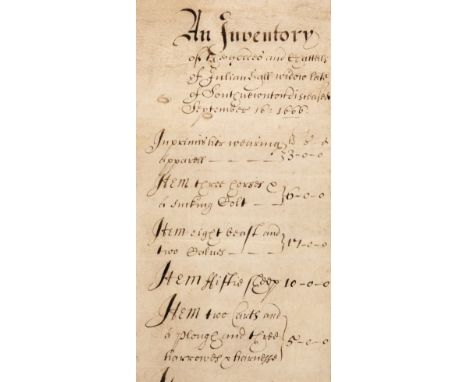 An Inventory
of the goodes and Chattells
of Julian Hall widow late
of South newnton diseased
September 16: 1666:
Inprimis his wearing li s d
apparell — — — 3-0-0
Item three horses &
a sucking Colt — — 6-0-0
Item eight beast and
two Calves — — 17-0-0
Item ffiftie sheep 10-0-0
Item two Carts and
a Plough and three
harrowes & harnesse 5-0-0